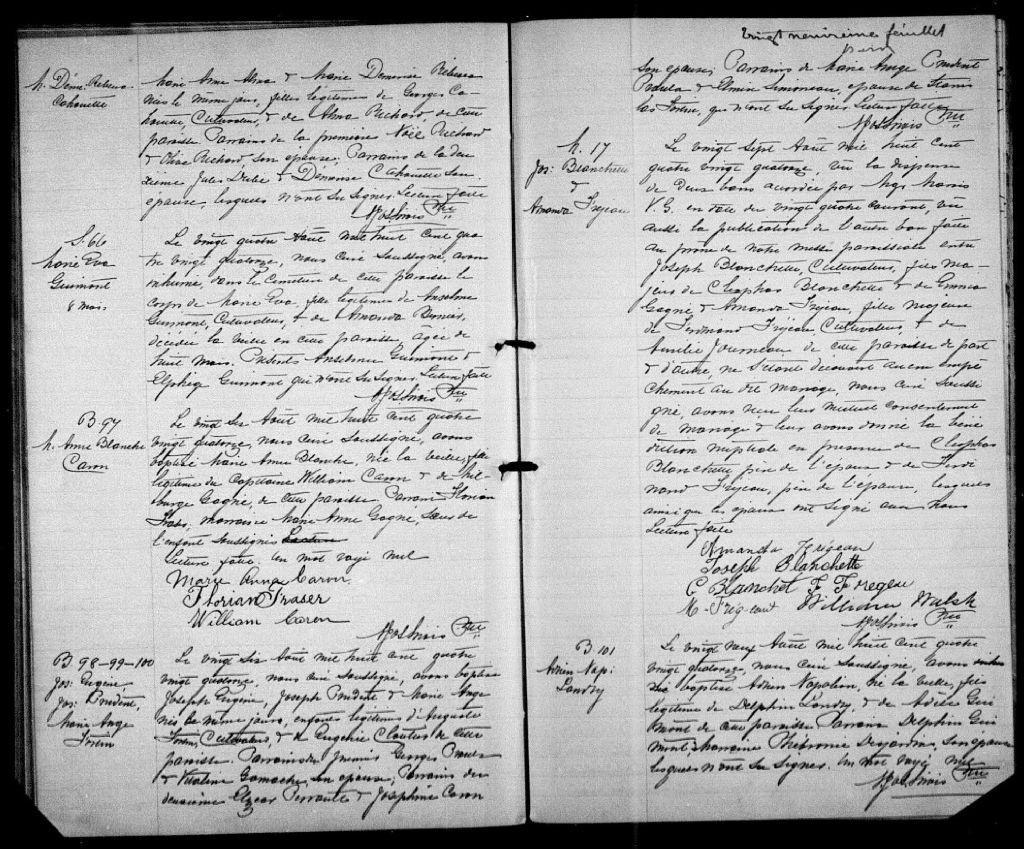 M. Déme. Rebecca
Cahouette
Marie Anne Alma & Marie Demerise Rebecca
nées le même jour, filles légitimes de Georges Ca-
houette, Cultivateur, & de Alma Richard, de cette
paroisse. Parrains de la première Noël Richard
& Richard son épouse; Parrains de la deu-
xième Jules & Démerise Cahouette son
épouse, lesquels n'ont su signer. Lecture faite
Ptre
S. 66
Marie Eva
Guimont
8 mois
Le vingt quatre Août mil huit cent qua-
tre vingt quatorze, nous curé soussigné, avons
inhumé, dans le cimetière de cette paroisse le
corps de Marie Eva, fille légitime de Anselme
Guimont, Cultivateur, & de Amanda
décédée la veille en cette paroisse, agée de
huit mois. Présents Anselme Guimont &
Elphège Guimont qui n'ont su signer. Lecture faite
Ptre
B 97
M. Anne Blanche
Caron
Le vingt six Août mil huit cent quatre
vingt quatorze, nous curé soussigné, avons
baptisé Marie Anne Blanche, née la veille, fille
légitime du Capitaine William Caron & de Wil-
burge Gagné, de cette paroisse. Parrain Florian
marraine Marie Anne Gagné, Sœur de
l'enfant soussignés Lecture
Lecture faite. Un mot rayé nul
Marie Anna Caron
Florian Fraser
William Caron
Ptre
B 98-99-100
Jos: Eugène
Jos: Prudent,
Marie Ange
Fortin
Le vingt six Août mil huit cent quatre
vingt quatorze nous curé soussigné, avons baptisé
Joseph Eugène, Joseph Prudent & Marie Ange
nés le même jour, enfants légitimes d'Auguste
Fortin, Cultivateur, & de Eugénie Cloutier de cette
paroisse. Parrains du premier Georges
& Gamache son épouse; Parrains du
deuxième Elzear & Joséphine Caron
Vingt neuvième feuillet
son épouse; Parrains de Marie Ange Prudent
& Simoneau, épouse de Stanis-
las Fortin, qui n'ont su signer. Lecture faite
Ptre
M. 17
Jos: Blanchette
&
Amanda Frejeau
Le vingt sept Août mil huit cent
quatre vingt quatorze, vu la dispense
de deux bans accordée par Mgr Marois
V. G. en date du vingt quatre courant, vu
aussi la publication de l'autre ban faite
au prône de notre messe paroissiale entre
Joseph Blanchette, Cultivateur, fils ma-
jeur de Cléophas Blanchette & de Emma
Gagné & Amanda Frejeau, fille majeure
de Ferdinand Frejeau, Cultivateur, & de
Emilie Journeau de cette paroisse de part
& d'autre, ne s'étant découvert aucun empê-
chement au dit mariage, nous curé soussi-
gné, avons reçu leur mutuel consentement
de mariage & leur avons donné la béné-
diction nuptiale en présence de Cléophas
Blanchette, père de l'époux & de Ferdi-
nand Frejeau, père de l'épouse, lesquels
ainsi que les époux ont signé avec nous
Lecture faite
Amanda Frégeau
Joseph Blanchette
C Blanchet F Fregeau
M. Frégeau William Walsh
Ptre
B 101
Adrien Napo:
Landry
Le vingt neuf Août mil huit cent quatre
vingt quatorze, nous curé soussigné, avons
baptisé Adrien Napoléon, né la veille, fils
légitime de Delphin Landry & de Adèle Gui-
mont de cette paroisse Parrain Delphin Gui-
mont, Marraine Desjardins, son épouse
lesquels n'ont su signer. Un mot rayé nul
Ptre